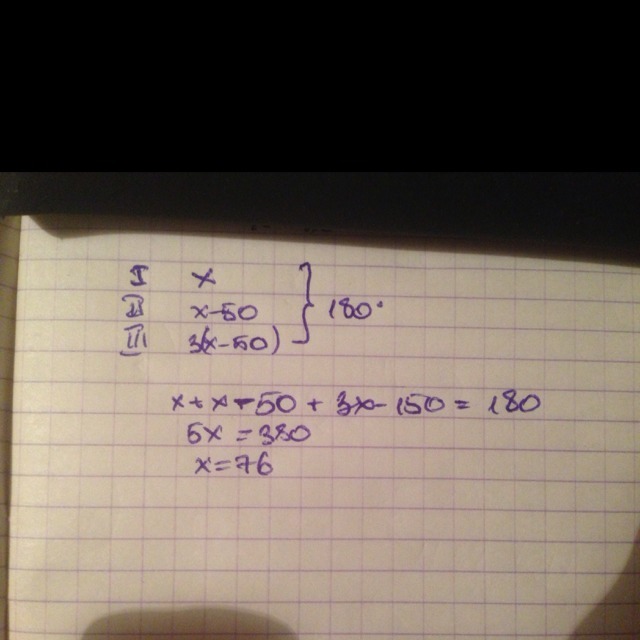 I x
II x-50 } 180°
III 3(x-50)
x+x-50+3x-150=180
5x=380
x=76